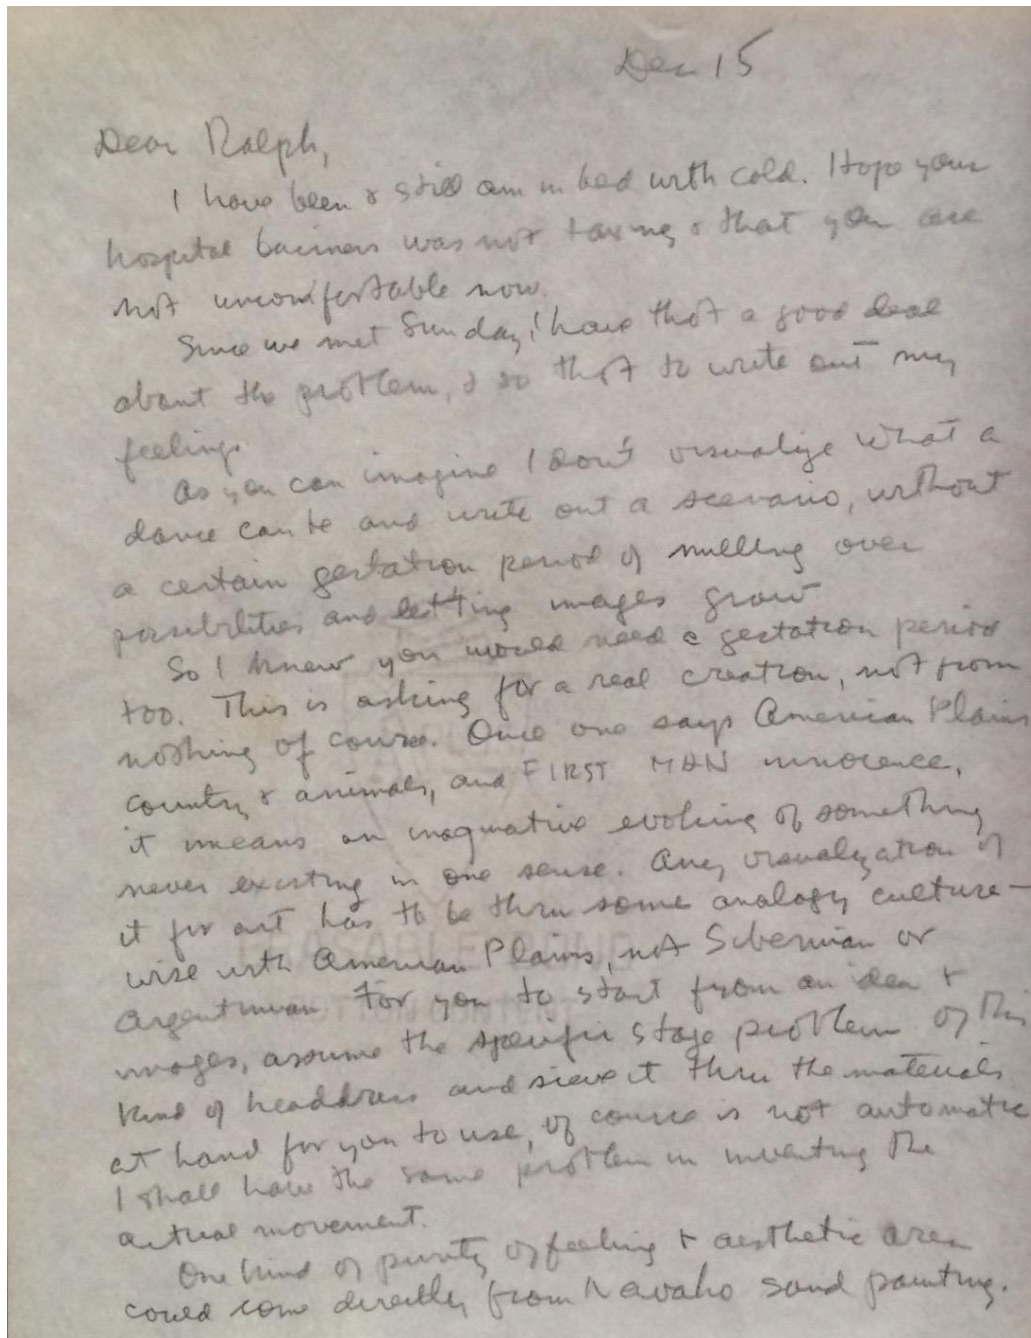 Dec 15
Dear Ralph,
I have been & still am in bed with cold. Hope your
hospital business was not taxing & that you are
not uncomfortable now.
Since we met Sunday, I have thot a good deal
about the problem, & so thot to write out my
feelings.
As you can imagine I don't visualize what a
dance can be and write out a scenario, without
a certain gestation period of mulling over
possibilities and letting images grow
So I knew you would need a gestation period
too. This is asking for a real creation, not from
nothing of course. Once one says American Plains
country & animals, and FIRST MAN innocence,
it means an imaginative evoking of something
never existing in one sense. Any visualization of
it for art has to be thru some analogy culture-
wise with American Plains, not Siberian or
Argentinian For you to start from an idea &
images, assume the specific stage problem of this
kind of headdress and sieve it thru the materials
at hand for you to use, of course is not automatic
I shall have the same problem in inventing the
actual movement.
One kind of purity of feeling & aesthetic area
could come directly from Navaho sand painting.
FEASABLE BOND
COTTON CONTENT